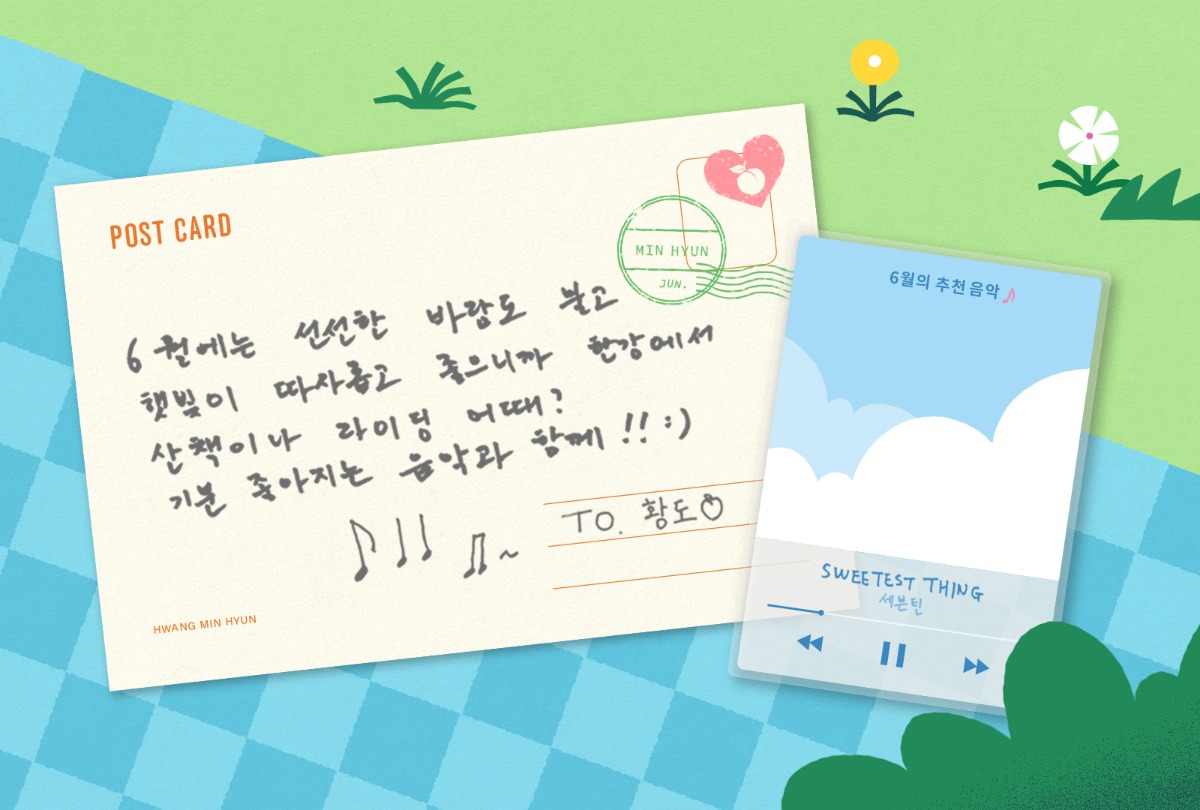 POST CARD
MIN HYUN
JUN.
6월에는 선선한 바람도 불고
햇빛이 따사롭고 좋으니까 한강에서
산책이나 라이딩 어때?
기분 좋아지는 음악과 함께 !! :)
TO. 황도
HWANG MIN HYUN
6월의 추천 음악
SWEETEST THING
세븐틴